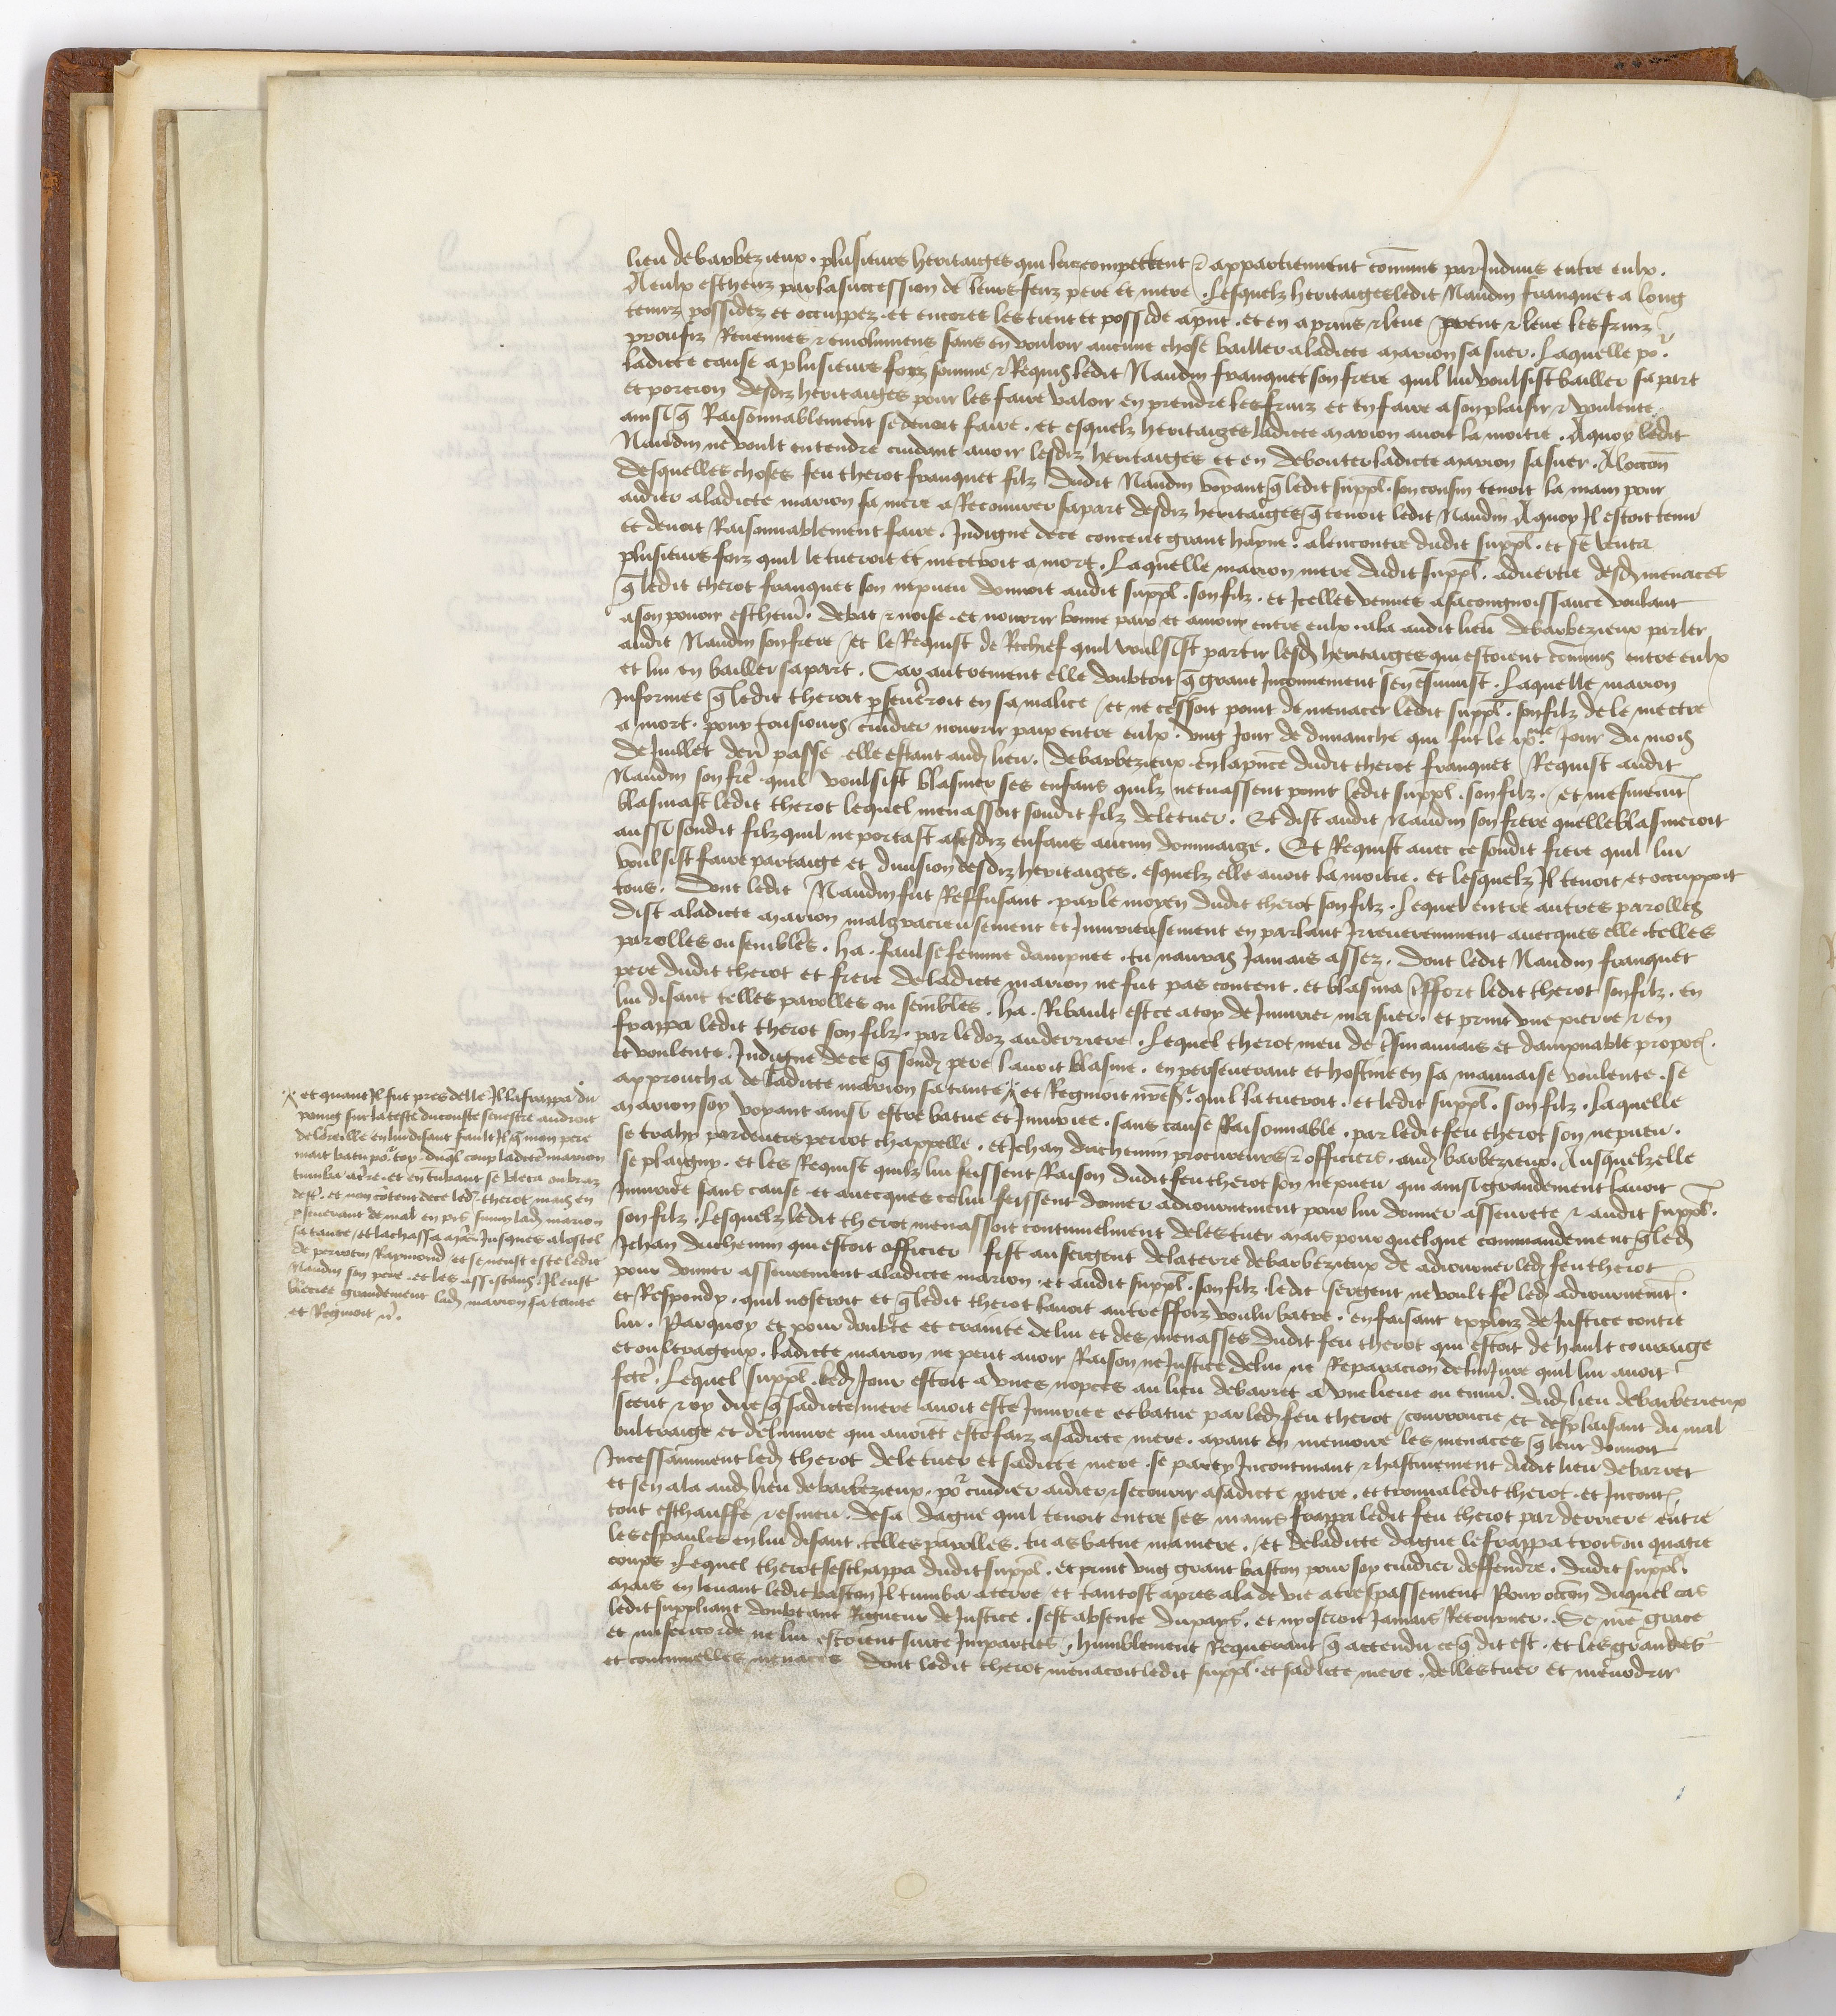 lieu de barbezieux . plusieurs heritaiges qui leur compettent & appartiennent comme par Indivis entre eulx .
A eulx escheuz par la succession de leurs feuz pere et mere . Lesquelz heritaiges ledit Naudin franquet a long
temps possidez et occuppez . et encores les tient et posside a pnt . et en a prins & leve prent & leve les fruiz
proufiz Revenues & emolumens sans en vouloir aucune chose bailler a ladicte marion sa suer . Laquelle por
ladicte cause a plusieurs foiz somme & Requis ledit Naudin franquet son frere quil lui voulsist bailler sa part
et porcion desdiz heritaiges pour les faire valoir en prendre les fruiz et en faire a son plaisir & voulente
ainsi q Raisonnablement se devoit faire . et esquelz heritaiges ladicte marion avoit la moitie . A quoy ledit
Naudin ne voult entendre cuidant avoir lesdiz heritaiges et en debouter ladicte marion sa suer . A loccon
desquelles choses feu therot franquet filz dudit Naudin voyant q ledit suppl . son cousin tenoit la main pour
aidier a ladicte marion sa mere a Recouvrer sa part desdiz heritaiges q tenoit ledit Naudin A quoy Il estoit tenu
et devoit Raisonnablement faire . Indigne de ce conceut grant hayne . alencontre dudit suppl . et se venta
plusieurs foiz quil le tueroit et mectroit a mort . Laquelle marion mere dudit suppl . advertie desd menaces
q ledit therot franquet son nepueu donnoit audit suppl . son filz . et Icelles venues a sa congnoissance voulant
a son pouoir eschever . debat & noise . et nourrir bonne paix et amour entre eulx . ala audit lieu de barbezieux parler
audit Naudin son frere / et le Requist de Rechief quil voulsist partir lesd heritaiges qui estoient communs entre eulx
et lui en bailler sa part . Car autrement elle doubtoit q grant Inconvenient sen ensuivist . Laquelle marion
Informee q ledit therot perseveroit en sa malice / et ne cessoit point de menacer ledit suppl . son filz de le mectre
a mort . pour tousiours cuidier nourrir paix entre eulx . ung Jour de dimanche qui fut le jour du mois
de Juillet den passe . elle estant aud lieu . de barbezieux . en la pnce dudit therot franquet Requist audit
Naudin son fre . quil voulsist blasmer ses enfans quilz ne tuassent point ledit suppl . son filz . et mesment
blasmast ledit therot lequel menassoit sondit filz de le tuer . Et dist audit Naudin son frere quelle blasmeroit
aussi sondit filz quil ne portast a sesdiz enfans aucun dommaige . Et Requist avec ce sondit frere quil lui
voulsist faire partaige et division desdiz heritaiges . esquelz elle avoit la moitie . et lesquelz Il tenoit et occuppoit
tous . Dont ledit Naudin fut Reffusant . par le moyen dudit therot son filz . Lequel entre autres parolles
dist a ladicte marion malgracieusement et Iniurieusement en parlant Irreveremment avecques elle . telles
parolles ou semblés . ha . faulse femme dampnee . tu nauras Jamais assez . dont ledit Naudin franquet
pere dudit therot et frere de ladicte marion ne fut pas content . et blasma ledit therot son filz . en
lui disant telles parolles ou sembles . ha . Ribault est ce a toy de Iniurier ma suer . et print une pierre & en
frappa ledit therot son filz . par le doz au derriere . Lequel therot meu de mauvais et dampnable propos .
et voulente . Indigne de ce q sond pere lavoit blasme . en perseverant et hostine en sa mauvaise voulente . se
approucha de ladicte marion sa tante x et Regnioit nres . quil la tueroit . et ledit suppl . son filz . Laquelle
marion soy voyant ainsi estre batue et Iniuriee . sans cause Raisonnable . par ledit feu therot son nepueu .
se trahy pardevers perrot chappelle . et Jehan duchemin procureurs & officiers . aud barbezieux . Ausquelz elle
se plaigny . et les Requist quilz lui feissent Raison dudit feu therot son nepueu qui ainsi grandement lavoit
Iniuriee sans cause et avecques ce lui feissent donner adiournement pour lui donner asseurete & audit suppl .
son filz . Lesquelz ledit therot menassoit continuelment de les tuer mais pour quelque commandement q led
Jehan duchemin qui estoit officier fist au sergent de la terre de barbezieux de adiourner led feu therot
pour donner asseurement a ladicte marion . et audit suppl . son filz . ledit sergent ne voult fe led adiournement .
et Respondy . quil noseroit et q ledit therot lavoit autreffoiz voulu batre . en faisant exploiz de Justice contre
lui . Parquoy et pour doubte et crainte de lui et des menasses dudit feu therot qui estoit de hault couraige
et oultrageux . ladicte marion ne peut avoir Raison ne Justice de lui ne Reparacion de liniure quil lui avoit
fcte . Lequel suppl . led Jour estoit a unes nopces au lieu de barret a une lieue ou envir . dud lieu de barbezieux
sceut & oy dire q sadicte mere avoit este Iniuriee et batue par led feu therot / courroucie et desplaisant du mal
oultraige et deliniure qui avoient este faiz a sadicte mere . ayant en memoire les menaces q leur donnoit
Incessamment led therot de le tuer et sadicte mere . se party Incontinant & hastivement dudit lieu de barret
et sen ala aud lieu de barbezieux . por cuidier aidier & secourir a sadicte mere . et trouva ledit therot . et Incont
tout eschauffe & esmeu . de sa dague quil tenoit entre ses mains frappa ledit feu therot par derriere entre
les espaules en lui disant . telles parolles . tu as batue ma mere . / et de ladicte dague le frappa trois ou quatre
coups . Lequel therot seschappa dudit suppl . et print ung grant baston pour soy cuidier deffendre . dudit suppl .
mais en levant ledit baston Il tumba a terre / et tantost apres ala de vie a trespassement Pour occon duquel cas
ledit suppliant doubtant Rigueur de Justice . sest absente du pays . et ny oseroit Jamais Retourner . Se nre grace
et misericorde ne lui estoient sur ce Imparties . humblement Requerant q actendu ce q dit est . et les grandes
et continuelles menaces dont ledit therot menacoit ledit suppl . et sadicte mere . de les tuer et meurdrir
x et quant Il fut pres delle Il la frappa du
poing sur la teste du couste senestre androit
de loreille en lui disant fault Il q mon pere
mait batu por toy . duql coup ladicte marion
tumba a tre . et en tumbant se bleca ou braz
dext . et non content de ce led therot mais en
perseverant de mal en pis suivy lad marion
sa tante / et la chassa apres Jusques a lostel
de perrotin Raymond / et se neust este ledit
Naudin son pere . et les assistans . Il eust
blecee grandement lad marion sa tante
et Regnioit nre .